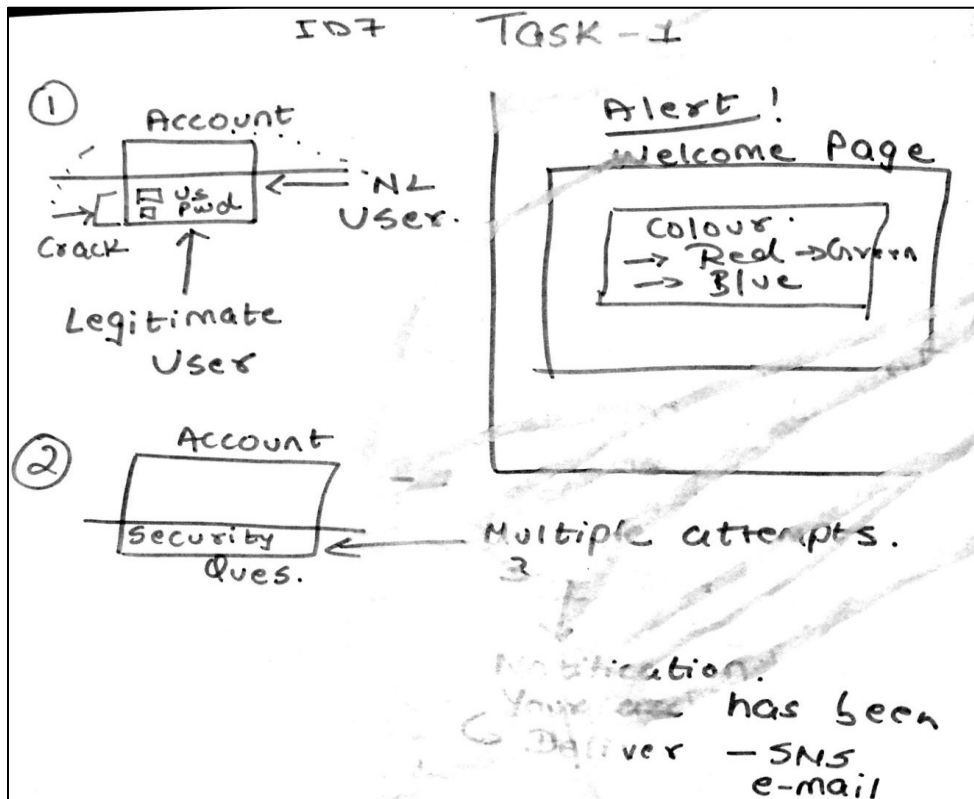 ID7 Task-1
①
Account
us
pwd
Crack
NL
User.
Legitimate
User
Alert!
Welcome Page
Colour.
→ Red → Green
→ Blue
②
Account
Security
Ques.
Multiple attempts.
3
Notification.
Your acc has been
Deliver - SMS
e-mail